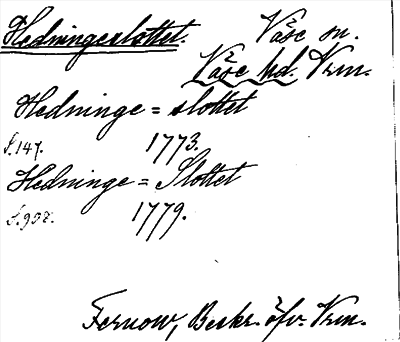 Hedningeslottet. Väse sn.
Väse hd. Vrm.
Hedninge=slottet
S.147. 1773.
Hedninge=Slottet
S.907. 1779.
Fernow, Beskr. öfv. Vrm.